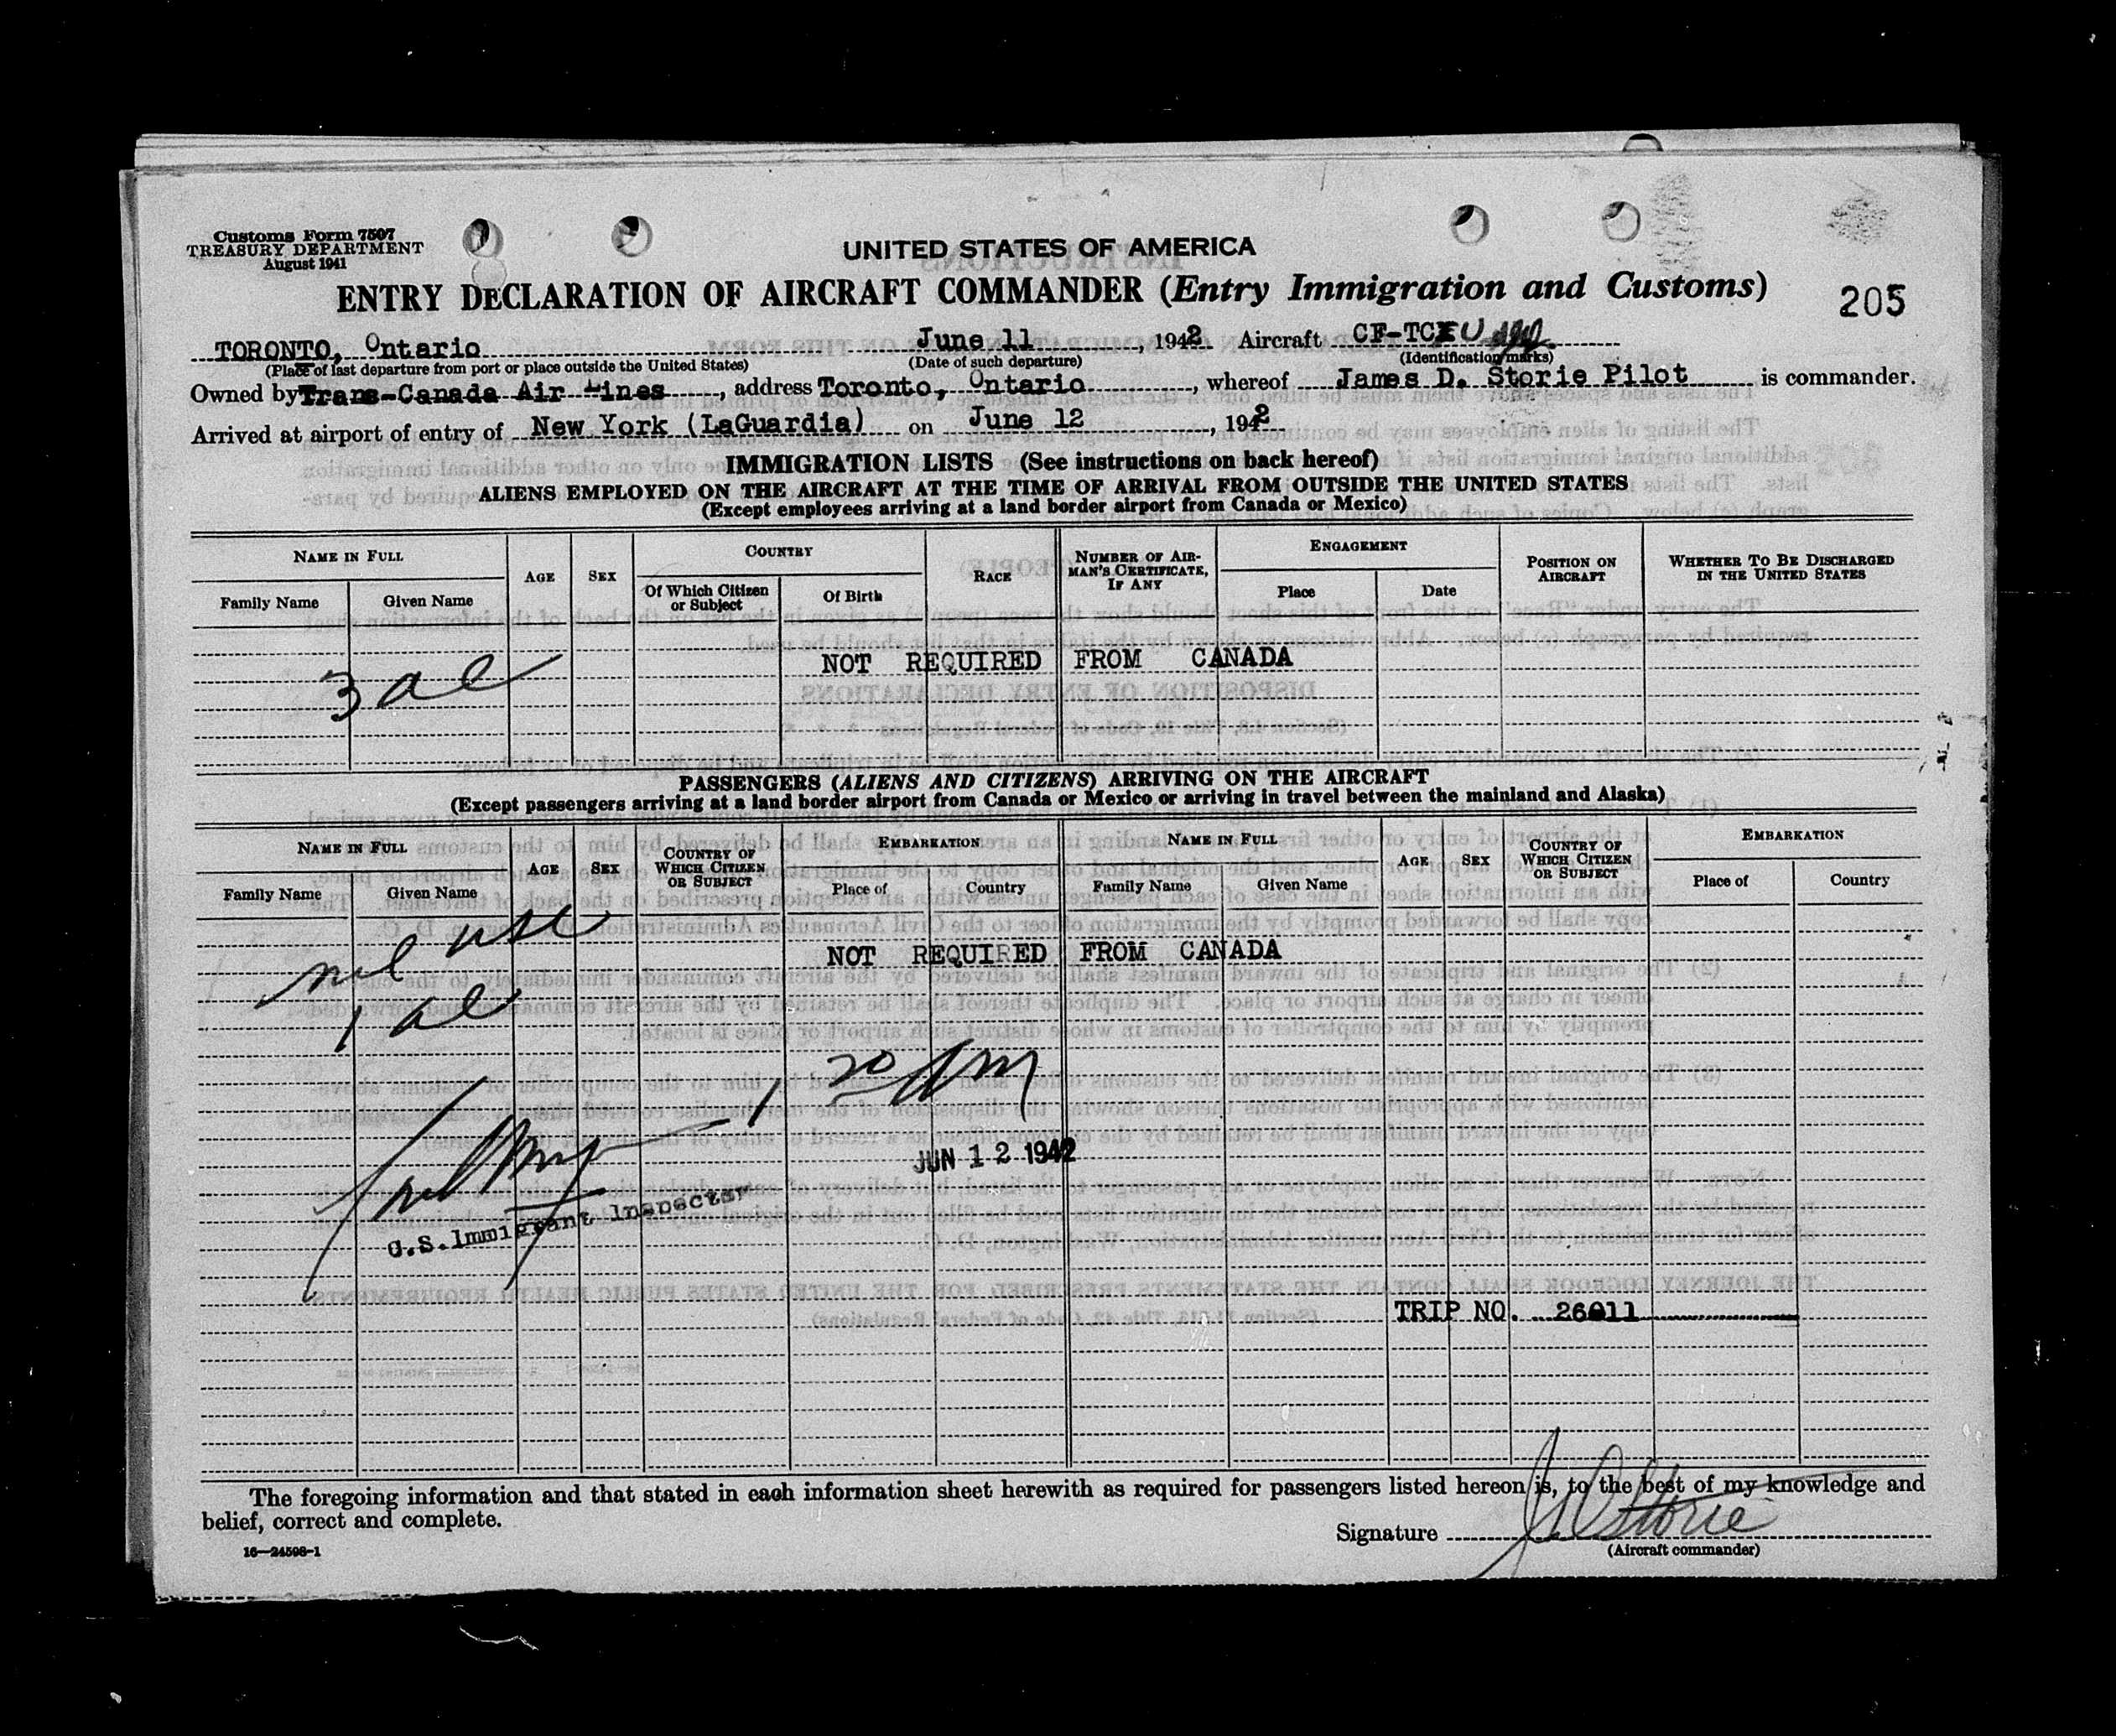 Customs Form 7507
TREASURY DEPARTMENT
August 1941
UNITED STATES OF AMERICA
ENTRY DECLARATION OF AIRCRAFT COMMANDER (Entry Immigration and Customs)
205
TORONTO, Ontario June 11, 1942 Aircraft CF-TC U
(Place of last departure from port or place outside the United States) (Date of such departure) (Identification marks)
Owned by Trans-Canada Air Lines, address Toronto, Ontario, whereof James D. Storie Pilot is commander.
Arrived at airport of entry of New York (LaGuardia) on June 12, 1942
IMMIGRATION LISTS (See instructions on back hereof)
ALIENS EMPLOYED ON THE AIRCRAFT AT THE TIME OF ARRIVAL FROM OUTSIDE THE UNITED STATES
(Except employees arriving at a land border airport from Canada or Mexico)
NAME IN FULL AGE SEX COUNTRY RACE NUMBER OF AIRMAN'S CERTIFICATE, IF ANY ENGAGEMENT POSITION ON AIRCRAFT WHETHER TO BE DISCHARGED IN THE UNITED STATES
Family Name Given Name Of Which Citizen or Subject Of Birth Place Date
NOT REQUIRED FROM CANADA
3 al
PASSENGERS (ALIENS AND CITIZENS) ARRIVING ON THE AIRCRAFT
(Except passengers arriving at a land border airport from Canada or Mexico or arriving in travel between the mainland and Alaska)
NAME IN FULL AGE SEX COUNTRY OF WHICH CITIZEN OR SUBJECT EMBARKATION NAME IN FULL AGE SEX COUNTRY OF WHICH CITIZEN OR SUBJECT EMBARKATION
Family Name Given Name Place of Country Family Name Given Name Place of Country
nil usc
NOT REQUIRED FROM CANADA
1 al
1 20 AM
JUN 12 1942
U.S. Immigrant Inspector
TRIP NO. 26011
The foregoing information and that stated in each information sheet herewith as required for passengers listed hereon is, to the best of my knowledge and
belief, correct and complete.
Signature J D Storie
(Aircraft commander)
16—24598-1